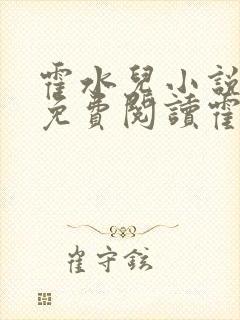 霍水兒小說
免費閱讀霍
崔守鉉